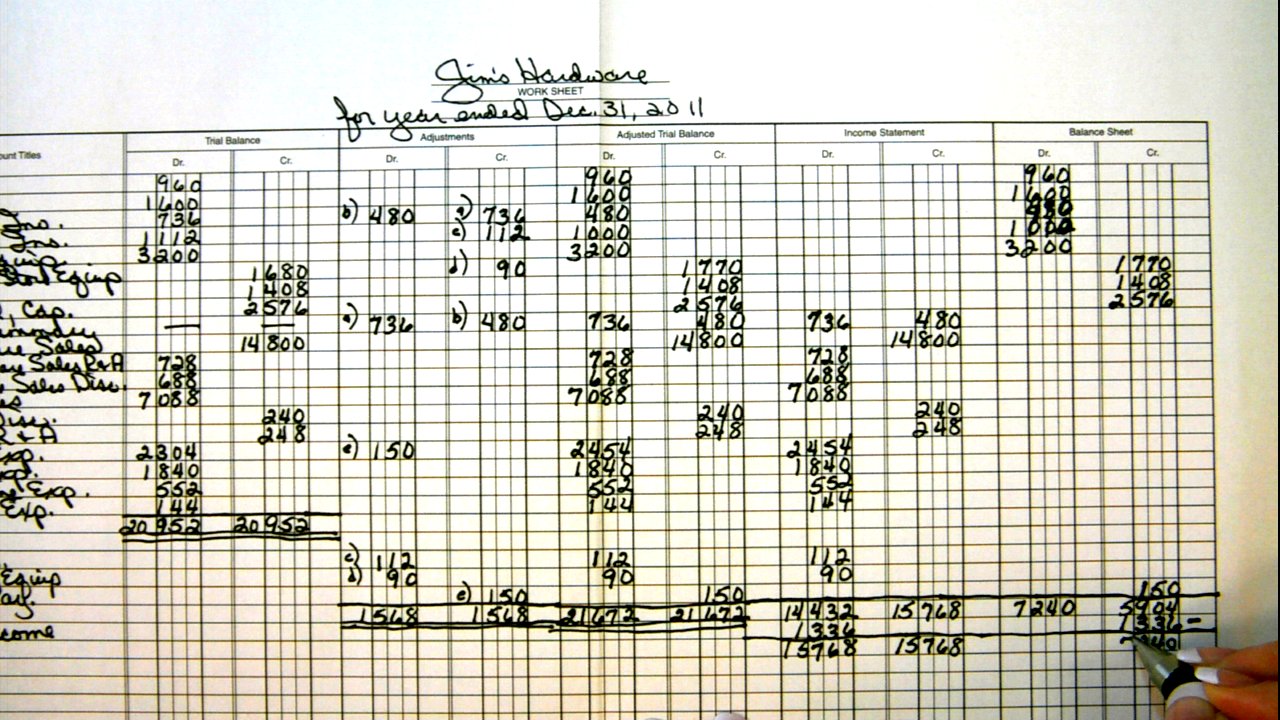 Jim's Hardware
WORK SHEET
for year ended Dec. 31, 2011
Trial Balance Adjustments Adjusted Trial Balance Income Statement Balance Sheet
unt Titles Dr. Cr. Dr. Cr. Dr. Cr. Dr. Cr. Dr. Cr.
960 960 960
1600 1600 1600
Ins. 736 b) 480 a) 736 480 480
Ins. 1112 c) 112 1000 1000
Equip. 3200 3200 3200
Store Equip 1680 d) 90 1770 1770
1408 1408 1408
, Cap. 2576 2576 2576
ummary — — a) 736 b) 480 736 480 736 480
Sales 14800 14800 14800
Sales R+A 728 728 728
Sales Disc. 688 688 688
es 7088 7088 7088
Disc. 240 240 240
R + A 248 248 248
Exp. 2304 e) 150 2454 2454
xp. 1840 1840 1840
Exp. 552 552 552
Exp. 144 144 144
20952 20952
c) 112 112 112
Equip d) 90 90 90
ay. e) 150 150 150
1568 1568 21672 21672 14432 15768 7240 5904
come 1336 1336 –
15768 15768